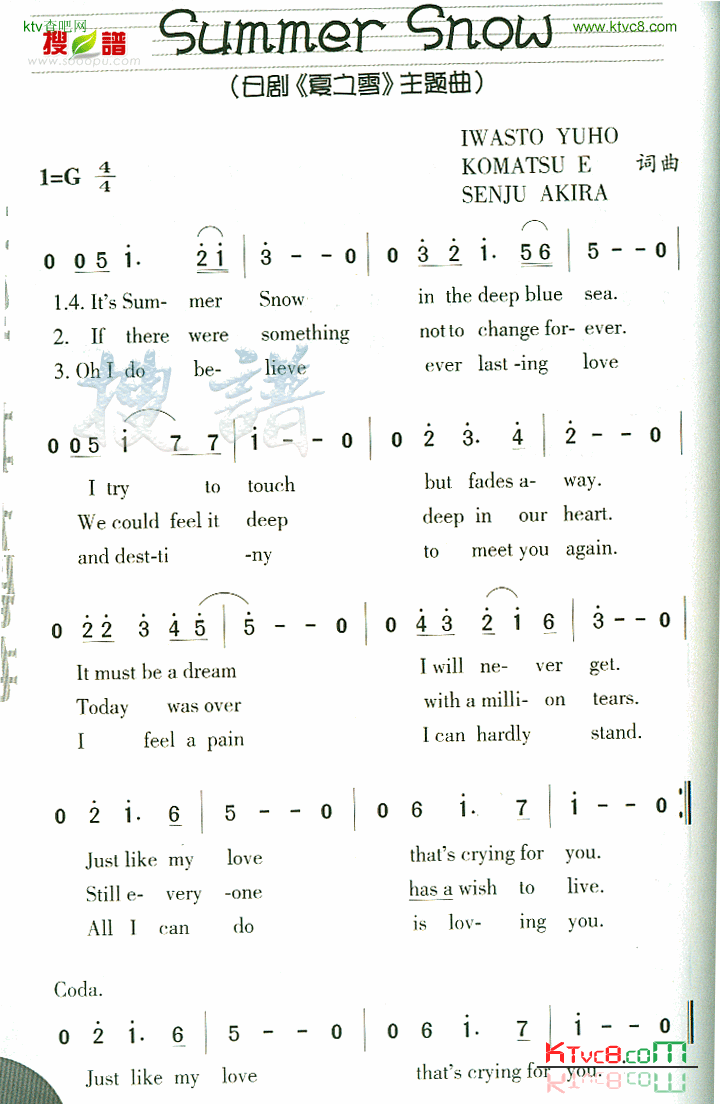 ktv杏吧网
搜谱
www.sooopu.com
Summer Snow
www.ktvc8.com
(日剧《夏之雪》主题曲)
IWASTO YUHO
1=G 4/4
KOMATSU E 词曲
SENJU AKIRA
0 0 5 1̇. 2̇ 1̇ | 3̇ - - 0 | 0 3̇ 2̇ 1̇. 5 6 | 5 - - 0 |
1.4. It's Sum- mer Snow in the deep blue sea.
2. If there were something not to change for- ever.
3. Oh I do be- lieve ever last -ing love
搜 譜
0 0 5 1̇ 7 7 | 1̇ - - 0 | 0 2̇ 3̇. 4̇ | 2̇ - - 0 |
I try to touch but fades a- way.
We could feel it deep deep in our heart.
and dest-ti -ny to meet you again.
0 2̇ 2̇ 3̇ 4̇ 5̇ | 5̇ - - 0 | 0 4̇ 3̇ 2̇ 1̇ 6 | 3̇ - - 0 |
It must be a dream I will ne- ver get.
Today was over with a milli- on tears.
I feel a pain I can hardly stand.
0 2̇ 1̇. 6 | 5 - - 0 | 0 6 1̇. 7 | 1̇ - - 0 :‖
Just like my love that's crying for you.
Still e- very -one has a wish to live.
All I can do is lov- ing you.
Coda.
0 2̇ 1̇. 6 | 5 - - 0 | 0 6 1̇. 7 | 1̇ - - 0 ‖
Just like my love that's crying for you.
KTvc8.com